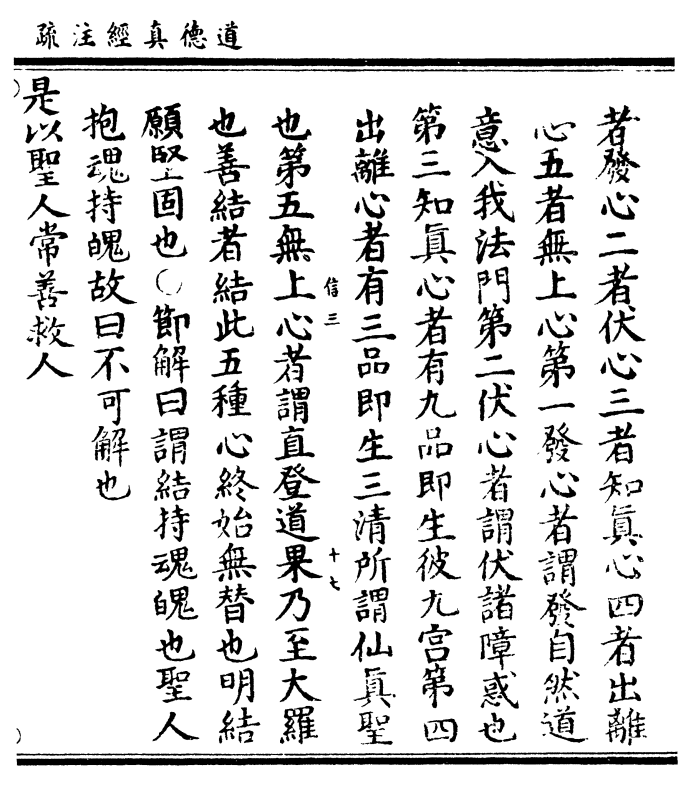 道德真經注疏
者發心二者伏心三者知眞心四者出離
心五者無上心第一發心者謂發自然道
意入我法門第二伏心者謂伏諸障惑也
第三知眞心者有九品即生彼九宮第四
出離心者有三品即生三清所謂仙眞聖
信三
十七
也第五無上心者謂直登道果乃至大羅
也善結者結此五種心終始無替也明結
願堅固也〇節解曰謂結持魂魄也聖人
抱魂持魄故曰不可解也
是以聖人常善救人